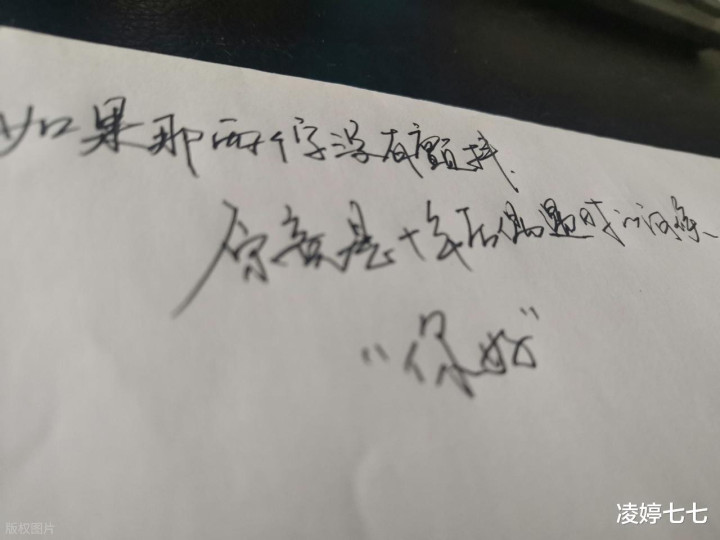 如果那两个字没有颤抖、
是十年后偶遇时的问候、
“你好”
版权图片
凌婷七七